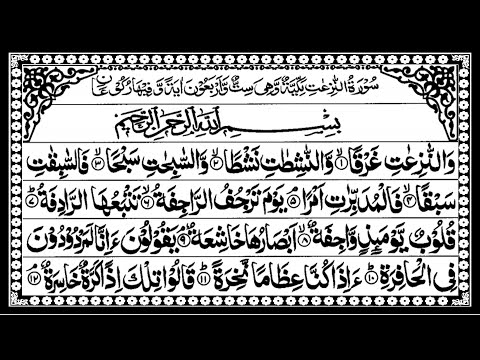 سُوْرَةُ النّٰزِعٰتِ مَكِّيَّةٌ وَّهِيَ سِتٌّ وَّاَرْبَعُوْنَ اٰيَةً وَّفِيْهَا رُكُوْعَانِ
بِسْمِ اللّٰهِ الرَّحْمٰنِ الرَّحِيْمِ
وَالنّٰزِعٰتِ غَرْقًا ۙ﴿۱﴾ وَّالنّٰشِطٰتِ نَشْطًا ۙ﴿۲﴾ وَّالسّٰبِحٰتِ سَبْحًا ۙ﴿۳﴾ فَالسّٰبِقٰتِ
سَبْقًا ۙ﴿۴﴾ فَالْمُدَبِّرٰتِ اَمْرًا ۘ﴿۵﴾ يَوْمَ تَرْجُفُ الرَّاجِفَةُ ۙ﴿۶﴾ تَتْبَعُهَا الرَّادِفَةُ ؕ﴿۷﴾
قُلُوْبٌ يَّوْمَئِذٍ وَّاجِفَةٌ ۙ﴿۸﴾ اَبْصَارُهَا خَاشِعَةٌ ۘ﴿۹﴾ يَقُوْلُوْنَ ءَاِنَّا لَمَرْدُوْدُوْنَ
فِي الْحَافِرَةِ ؕ﴿۱۰﴾ ءَاِذَا كُنَّا عِظَامًا نَّخِرَةً ؕ﴿۱۱﴾ قَالُوْا تِلْكَ اِذًا كَرَّةٌ خَاسِرَةٌ ۘ﴿۱۲﴾